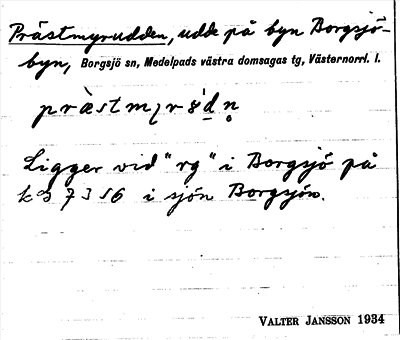 Prästmyrudden, udde på byn Borgsjö-
byn, Borgsjö sn, Medelpads västra domsagas tg, Västernorrl. l.
Ligger vid "rg" i Borgsjö på
7356 i sjön Borgsjön.
VALTER JANSSON 1934